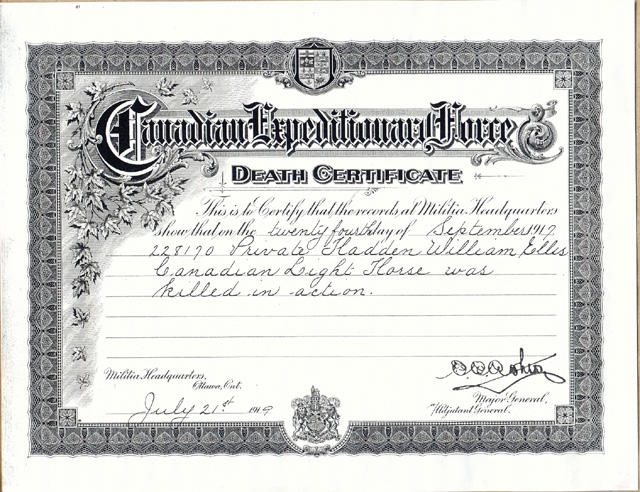 Canadian Expeditionary Force
DEATH CERTIFICATE
This is to Certify that the records at Militia Headquarters
show that on the twenty fourth day of September 1917
228170 Private Hadden William Ellis
Canadian Light Horse was
killed in action.
Militia Headquarters,
Ottawa, Ont.
July 21st 1919
Major General,
Adjutant General.